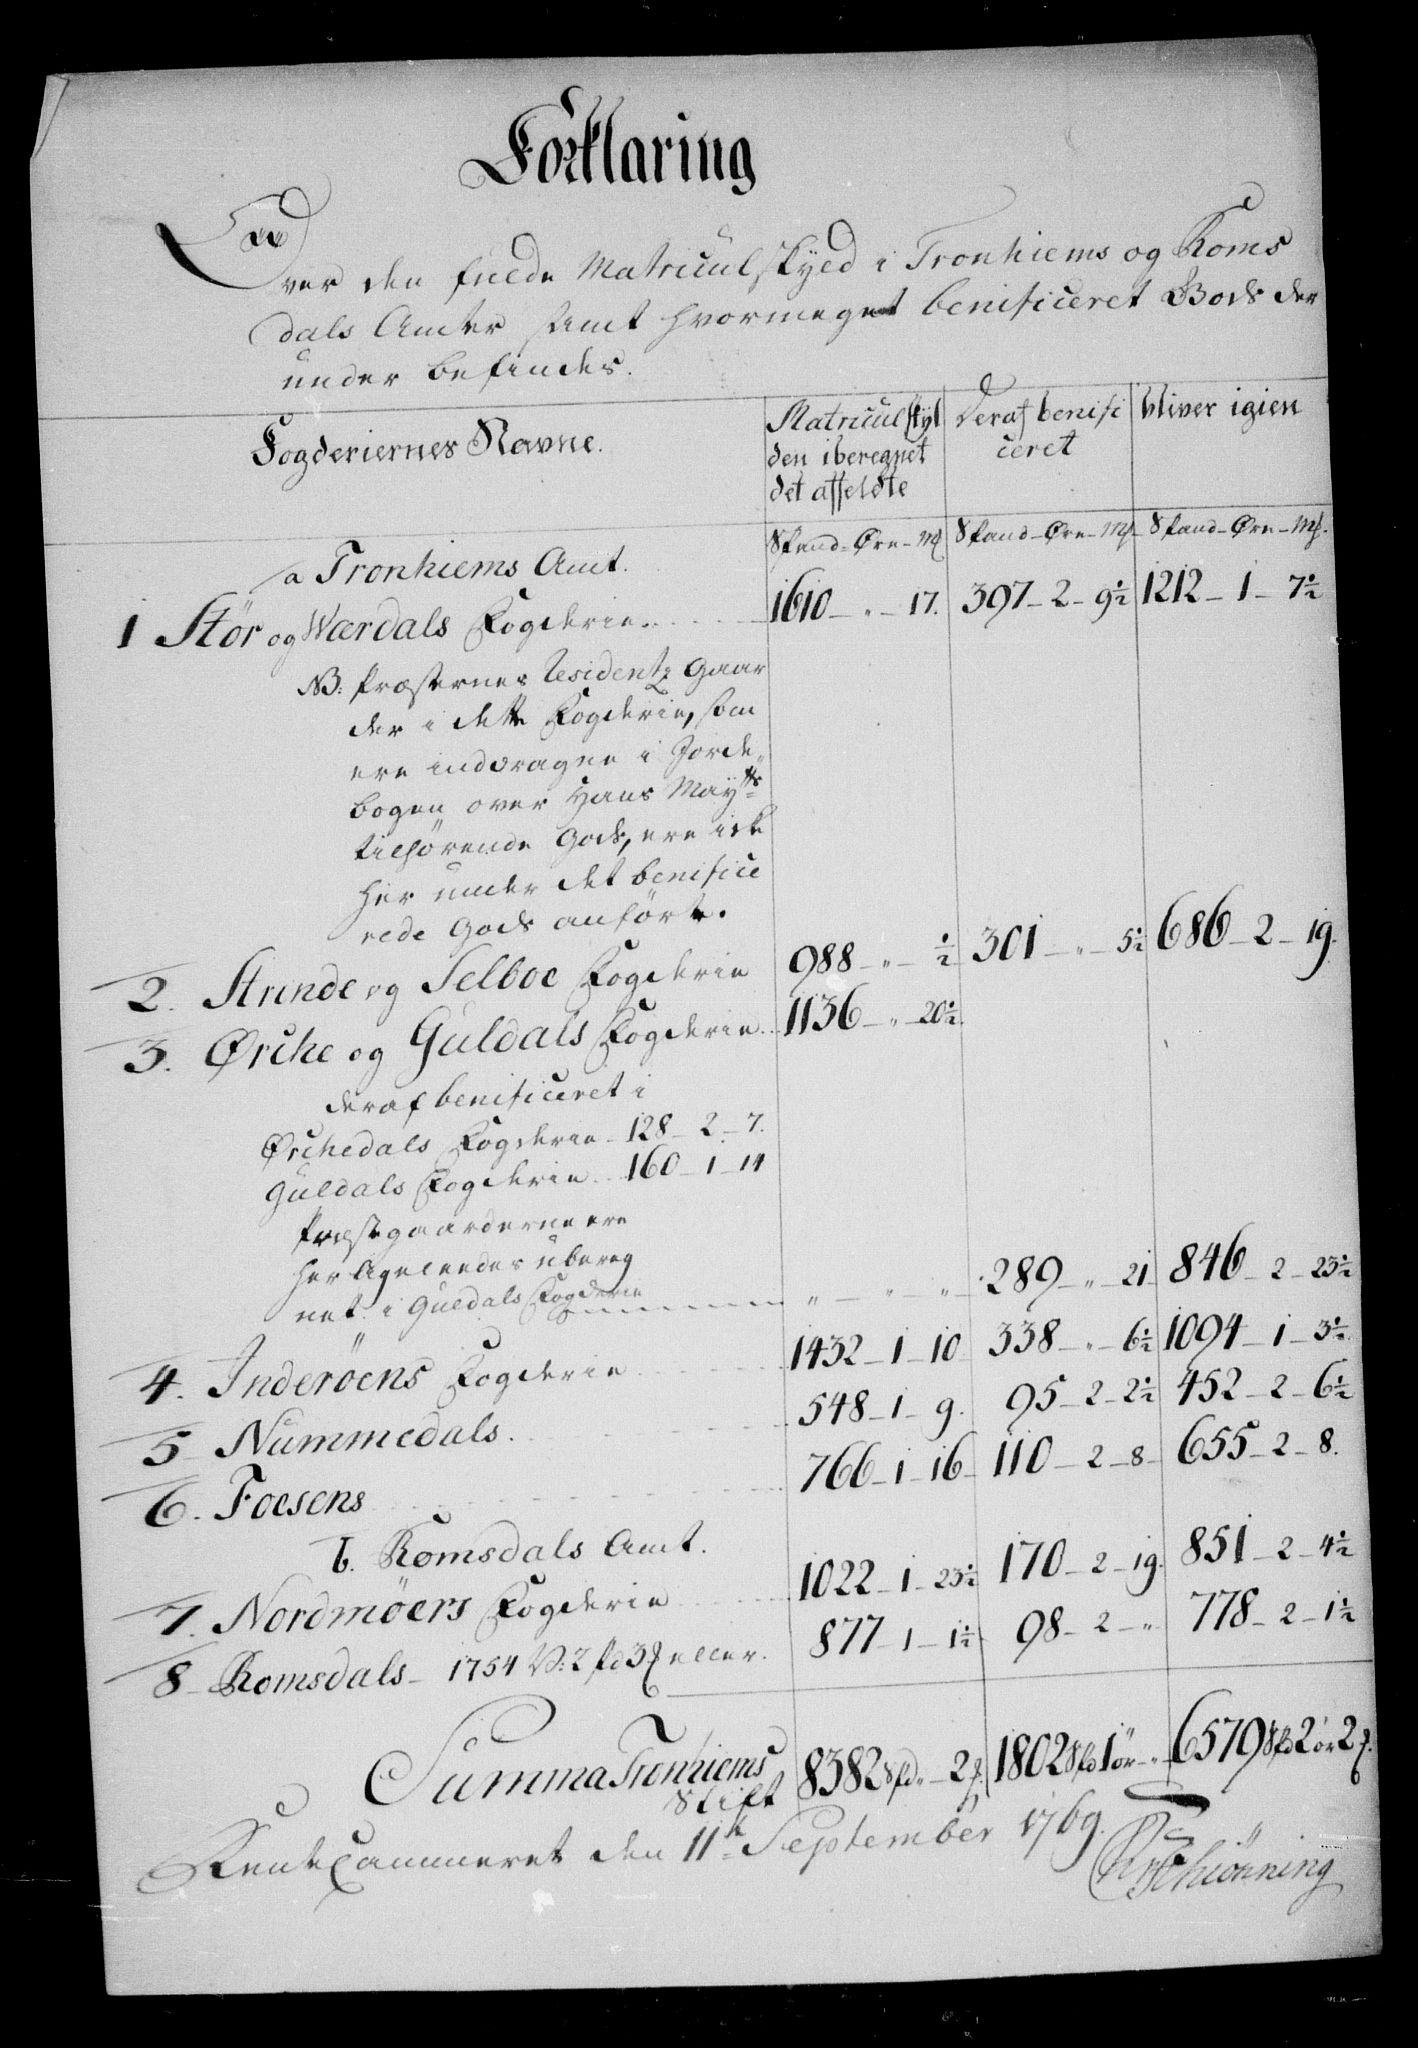 Forklaring
Over den fulde Matricul skyld i Tronhiems og Roms
dals Amter samt hvormeget benificeret Gods der
under befindes.
Fogderiernes Navne.
Matricul skyl
den iberegnet
det affeldte
Deraf benifi
ceret
bliver igien
Spand - Øre - Mk
Spand - Øre - Mk
Spand - Øre - Mk.
a Tronhiems Amt.
1 Stør og Wærdals Fogderie. 1610 - " - 17. 397 - 2 - 9½ 1212 - 1 - 7½
NB. Præsternes Residentz Gaar
der i dette Fogderie, som
ere inddragne i Jorde„
bogen over Hans Mayts
tilhørende Gods, ere icke
her under det benifice
rede Gods anført.
2. Strinde og Selboe Fogderie 988 - " - ½ 301 - " - 5½ 686 - 2 - 19.
3. Ørche og Guldals Fogderie 1136 - " - 20½.
deraf benificeret i
Ørchedals Fogderie - 128 - 2 - 7.
Guldals Fogderie 160 - 1 - 14
Præstegaarderne ere
her ligeleedes ubereg
net i Guldals Fogderie " - " - " - 289 - " - 21 846 - 2 - 23½
4. Inderöens Fogderie 1432 - 1 - 10 338 - " - 6½ 1094 - 1 - 3½
5 Nummedals. 548 - 1 - 9. 95 - 2 - 2½ 452 - 2 - 6½
6. Foesens 766 - 1 - 16 110 - 2 - 8 655 - 2 - 8.
b. Romsdals Amt.
7. Nordmöers Fogderie 1022 - 1 - 23½ 170 - 2 - 19. 851 - 2 - 4½
8 - Romsdals - 1754 V: 2 pd 3 eller. 877 - 1 - 1½ 98 - 2 - " 778 - 2 - 1½
Summa Tronhiems
Stift 8382 Spd " - 2 1802 Spd 1 ör - " 6579 Spd 2 ör 2
RenteCammeret den 11te September 1769.
Schiönning